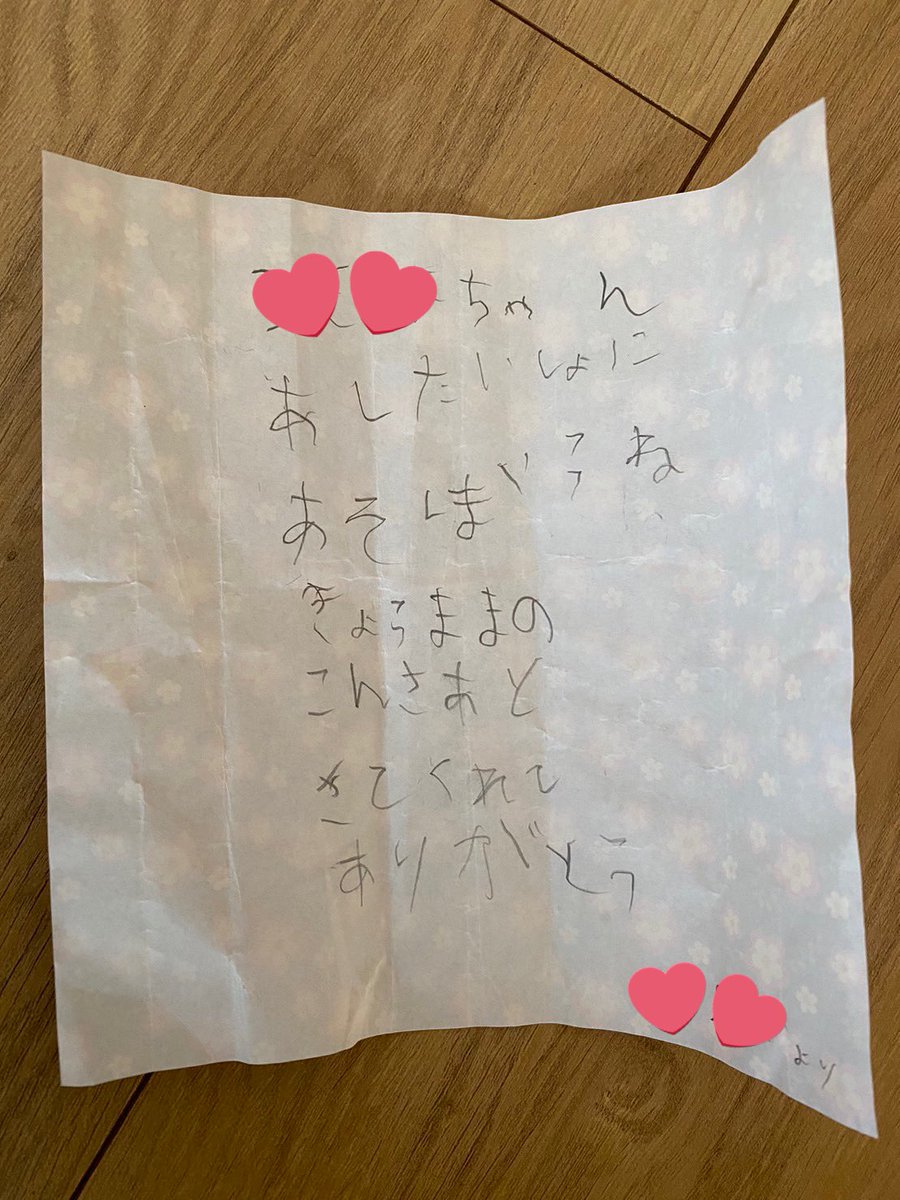 ちゃん
あしたいしょに
あそぼうね
きょうままの
こんさあと
きてくれて
ありがとう
より